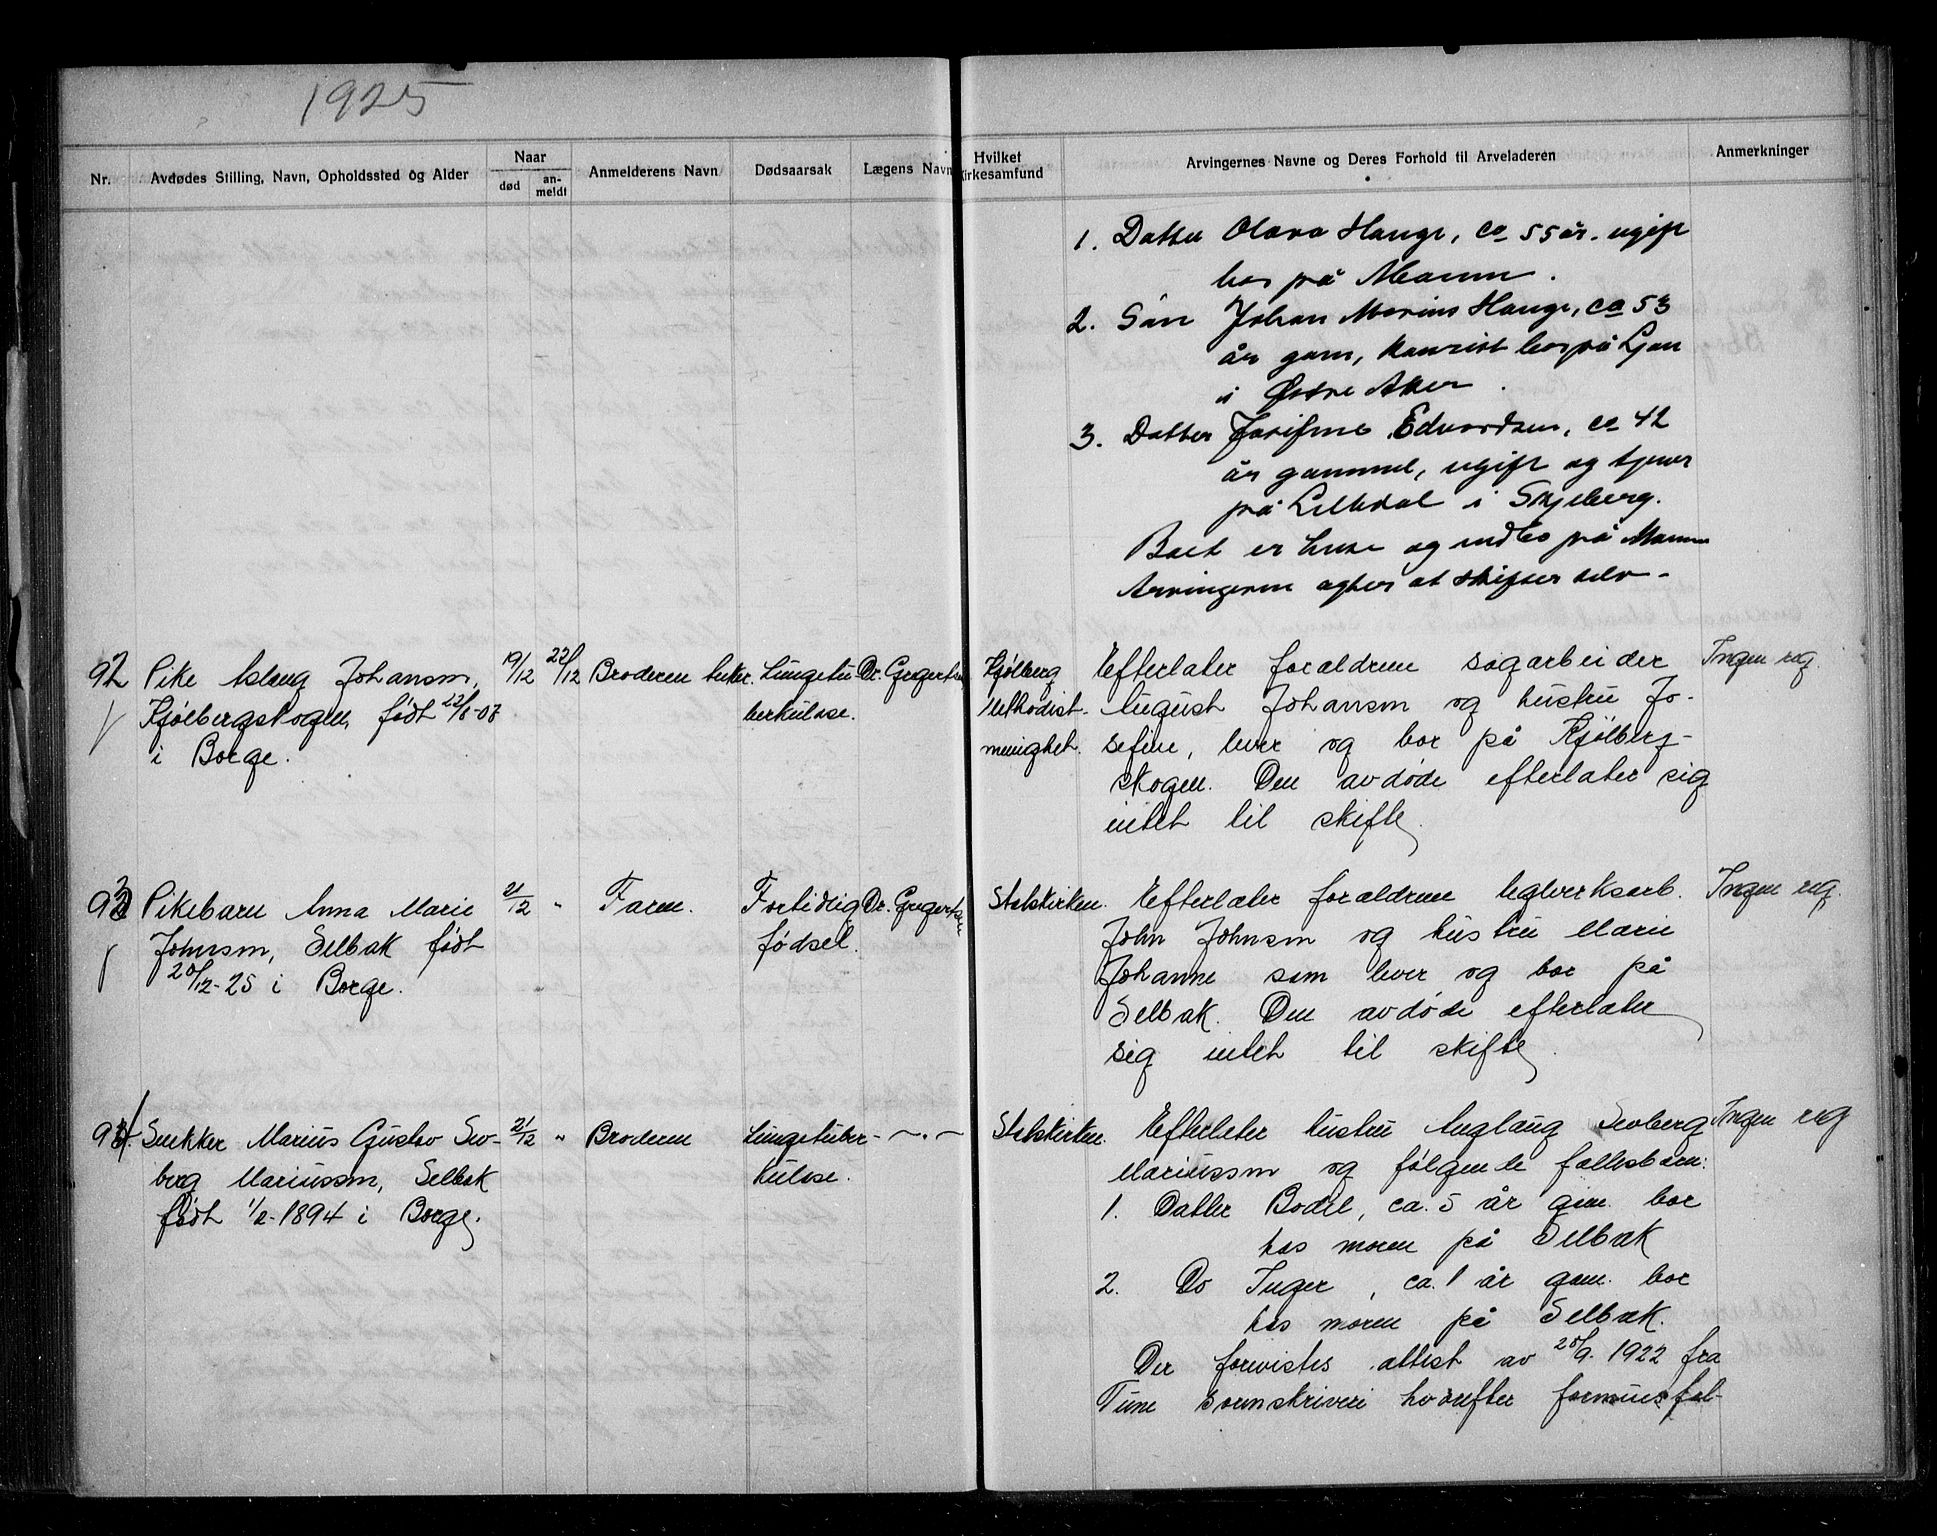 1925
Nr.
Avdødes Stilling, Navn, Opholdssted og Alder
Naar
død
an-
meldt
Anmelderens Navn
Dødsaarsak
Lægens Navn
Hvilket
irkesamfund
Arvingernes Navne og Deres Forhold til Arveladeren
Anmerkninger
1. Datter Olava Hauge, ca 55 år. ugift
bor på Moum.
2. Sön Johan Marius Hauge, ca 53
år gam, bor på Ljan
i Østre Aker.
3. Datter Josefine Edvardsen, ca 42
år gammel, ugift og tjener
på i Skjeberg.
Boet er huse og indbo på Moum
Arvingerne agter at skifter selv -
92
Pike Aslaug Johansen,
Kjølbergskogen, født 22/8-07
i Borge.
19/12
22/12
Broderen
Lungetu
berkulose.
Dr. Gregertsen
Kjølberg
Methodist-
menighet.
Efterlater forældrene sagarbeider
August Johansen og hustru Jo-
sefine, lever og bor på Kjølberg-
skogen. Den avdøde efterlater sig
intet til skifte
Ingen reg.
93
Pikebarn Anna Marie
Johnsen, Selbak født
20/12-25 i Borge.
21/12
"
Faren.
Fortidlig
fødsel.
Dr. Gregertsen
Statskirken.
Efterlater forældrene teglverksarb.
John Johnsen og hustru Marie
Johanne som lever og bor på
Selbak. Den avdøde efterlater
sig intet til skifte.
Ingen reg.
94.
Snekker Marius Gustav Sev-
berg Mariussen, Selbak
født 1/2-1894 i Borge.
21/12
"
Broderen
Lungetuber-
kulose.
-"-
Statskirken.
Efterlater hustru Auglaug Sevberg
Mariussen og følgende fællesbarn:
1. Datter Bodil, ca. 5 år gam. bor
hos moren på Selbak
2. Do Inger, ca. 1 år gam. bor
hos moren på Selbak.
Der forevistes attest av 28/9. 1922 fra
Tune sorenskriveri hvorefter formuesfel-
Ingen reg